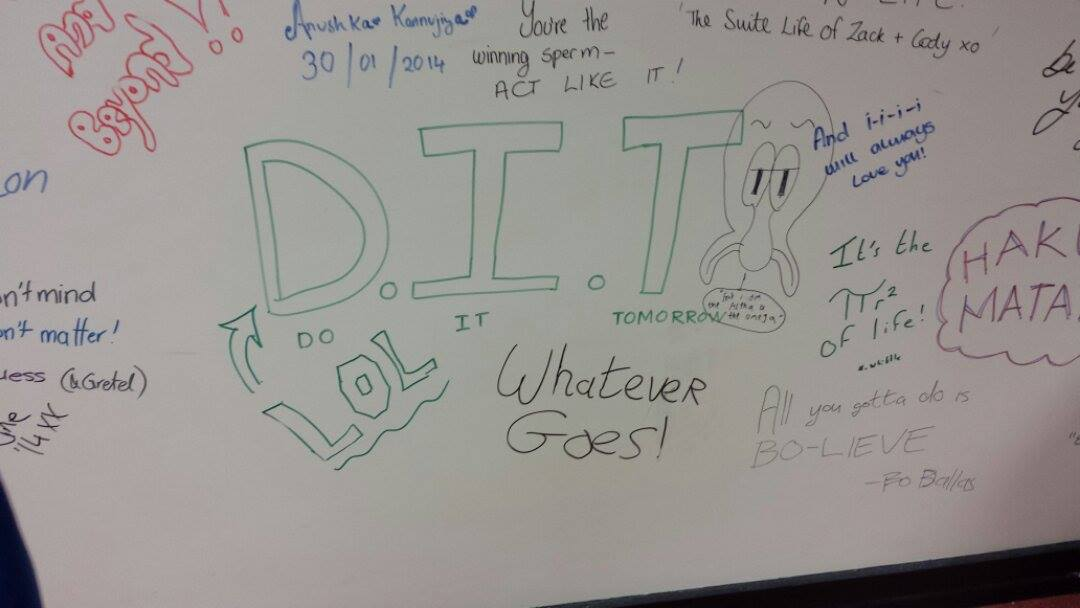 Beyond!!
Anushka Kannujiya
30/01/2014
You're the
winning sperm-
ACT LIKE IT!
'The Suite Life of Zack + Cody xo'
be
D.I.T
DO IT TOMORROW
And i-i-i-i
will always
love you!
I am
the Alpha &
the omega
on
n't mind
on't matter!
uess (& Gretel)
'14 xx
LOL
Whatever
Goes!
It's the
πr²
of life!
HAK
MATA
All you gotta do is
BO-LIEVE
-Bo Ballas